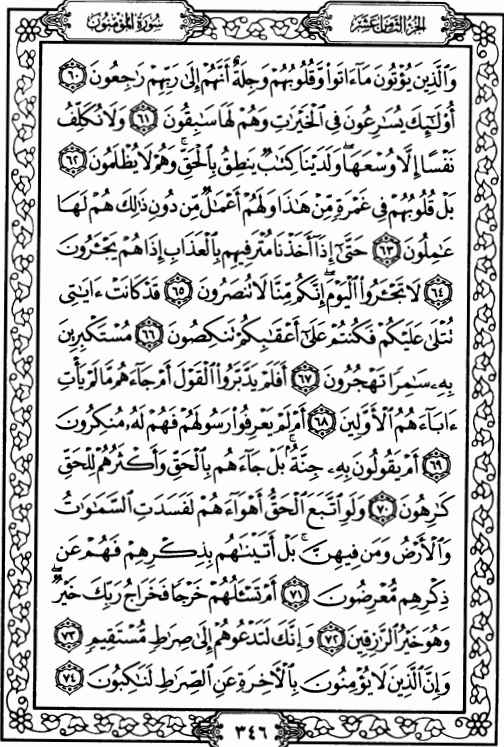 الجزء الثامن عشر
سورة المؤمنون
وَالَّذِينَ يُؤْتُونَ مَآ ءَاتَوا۟ وَّقُلُوبُهُمْ وَجِلَةٌ أَنَّهُمْ إِلَىٰ رَبِّهِمْ رَٰجِعُونَ ٦٠
أُو۟لَٰٓئِكَ يُسَٰرِعُونَ فِى ٱلْخَيْرَٰتِ وَهُمْ لَهَا سَٰبِقُونَ ٦١ وَلَا نُكَلِّفُ
نَفْسًا إِلَّا وُسْعَهَا ۖ وَلَدَيْنَا كِتَٰبٌ يَنطِقُ بِٱلْحَقِّ ۚ وَهُمْ لَا يُظْلَمُونَ ٦٢
بَلْ قُلُوبُهُمْ فِى غَمْرَةٍ مِّنْ هَٰذَا وَلَهُمْ أَعْمَٰلٌ مِّن دُونِ ذَٰلِكَ هُمْ لَهَا
عَٰمِلُونَ ٦٣ حَتَّىٰٓ إِذَآ أَخَذْنَا مُتْرَفِيهِم بِٱلْعَذَابِ إِذَا هُمْ يَجْـَٔرُونَ
٦٤ لَا تَجْـَٔرُوا۟ ٱلْيَوْمَ ۖ إِنَّكُم مِّنَّا لَا تُنصَرُونَ ٦٥ قَدْ كَانَتْ ءَايَٰتِى
تُتْلَىٰ عَلَيْكُمْ فَكُنتُمْ عَلَىٰٓ أَعْقَٰبِكُمْ تَنكِصُونَ ٦٦ مُسْتَكْبِرِينَ
بِهِۦ سَٰمِرًا تَهْجُرُونَ ٦٧ أَفَلَمْ يَدَّبَّرُوا۟ ٱلْقَوْلَ أَمْ جَآءَهُم مَّا لَمْ يَأْتِ
ءَابَآءَهُمُ ٱلْأَوَّلِينَ ٦٨ أَمْ لَمْ يَعْرِفُوا۟ رَسُولَهُمْ فَهُمْ لَهُۥ مُنكِرُونَ
٦٩ أَمْ يَقُولُونَ بِهِۦ جِنَّةٌۢ ۚ بَلْ جَآءَهُم بِٱلْحَقِّ وَأَكْثَرُهُمْ لِلْحَقِّ
كَٰرِهُونَ ٧٠ وَلَوِ ٱتَّبَعَ ٱلْحَقُّ أَهْوَآءَهُمْ لَفَسَدَتِ ٱلسَّمَٰوَٰتُ
وَٱلْأَرْضُ وَمَن فِيهِنَّ ۚ بَلْ أَتَيْنَٰهُم بِذِكْرِهِمْ فَهُمْ عَن
ذِكْرِهِم مُّعْرِضُونَ ٧١ أَمْ تَسْـَٔلُهُمْ خَرْجًا فَخَرَاجُ رَبِّكَ خَيْرٌ ۖ
وَهُوَ خَيْرُ ٱلرَّٰزِقِينَ ٧٢ وَإِنَّكَ لَتَدْعُوهُمْ إِلَىٰ صِرَٰطٍ مُّسْتَقِيمٍ ٧٣
وَإِنَّ ٱلَّذِينَ لَا يُؤْمِنُونَ بِٱلْءَاخِرَةِ عَنِ ٱلصِّرَٰطِ لَنَٰكِبُونَ ٧٤
٣٤٦